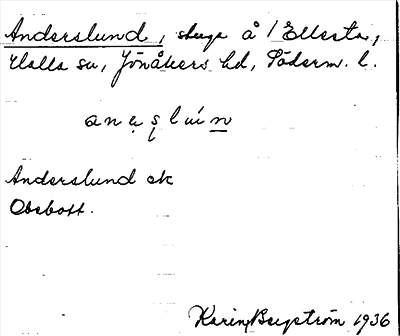 Anderslund, stuga å 1 Ellesta,
Halla sn, Jönåkers hd, Söderm. l.
anạş lúin
Anderslund ek
Obebott.
Karin Bergström 1936